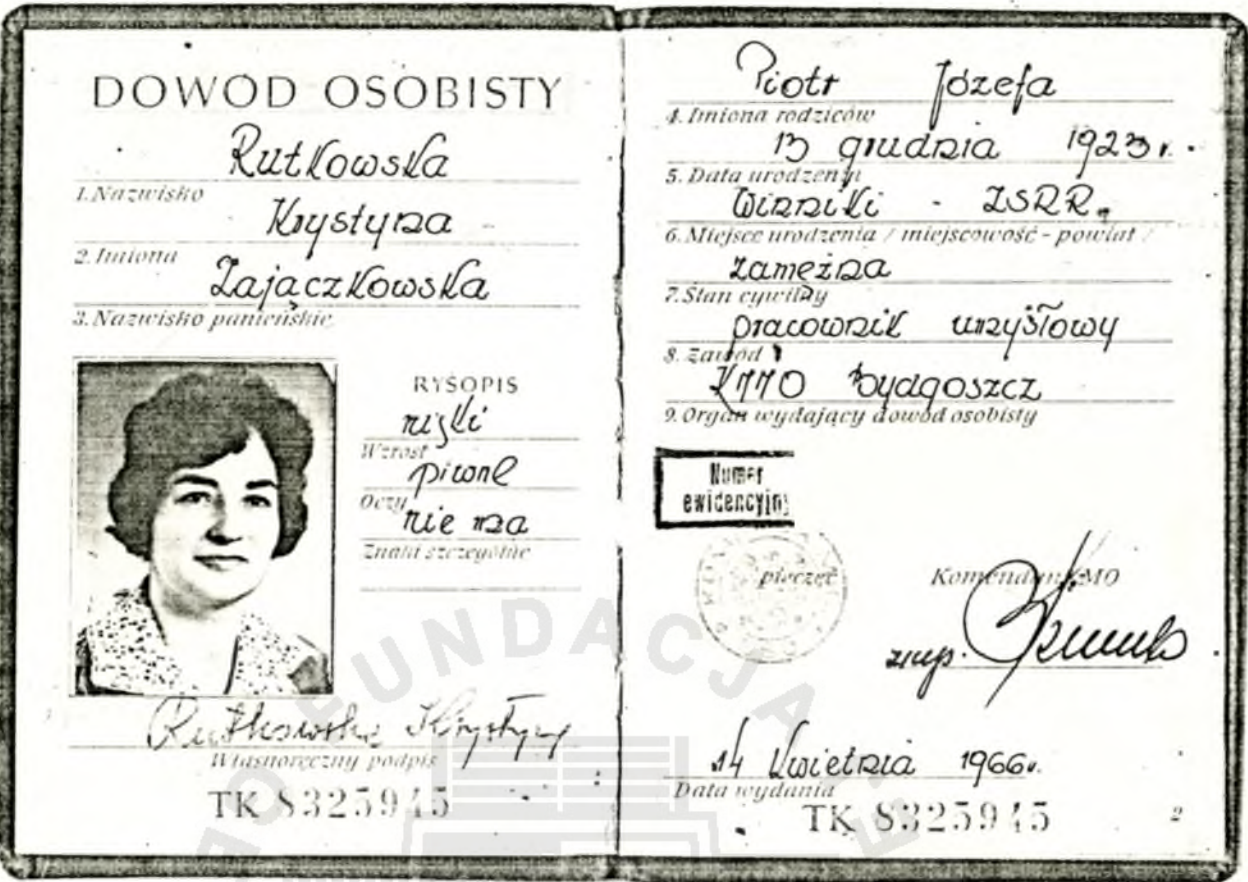 DOWÓD OSOBISTY
Rutkowska
1. Nazwisko
Krystyna
2. Imiona
Zajączkowska
3. Nazwisko panieńskie
RYSOPIS
nizki
Wzrost
piwne
Oczy
nie ma
Znaki szczególne
Rutkowska Krystyna
Własnoręczny podpis
TK 8325945
Piotr Józefa
4. Imiona rodziców
13 grudnia 1923 r.
5. Data urodzenia
Winniki - ZSRR.
6. Miejsce urodzenia / miejscowość - powiat /
zamężna
7. Stan cywilny
pracownik umysłowy
8. Zawód
KMMO Bydgoszcz
9. Organ wydający dowód osobisty
Numer
ewidencyjny
pieczęć
Komendant MO
zup.
14 kwietnia 1966 r.
Data wydania
TK 8325945
2
FUNDACJA